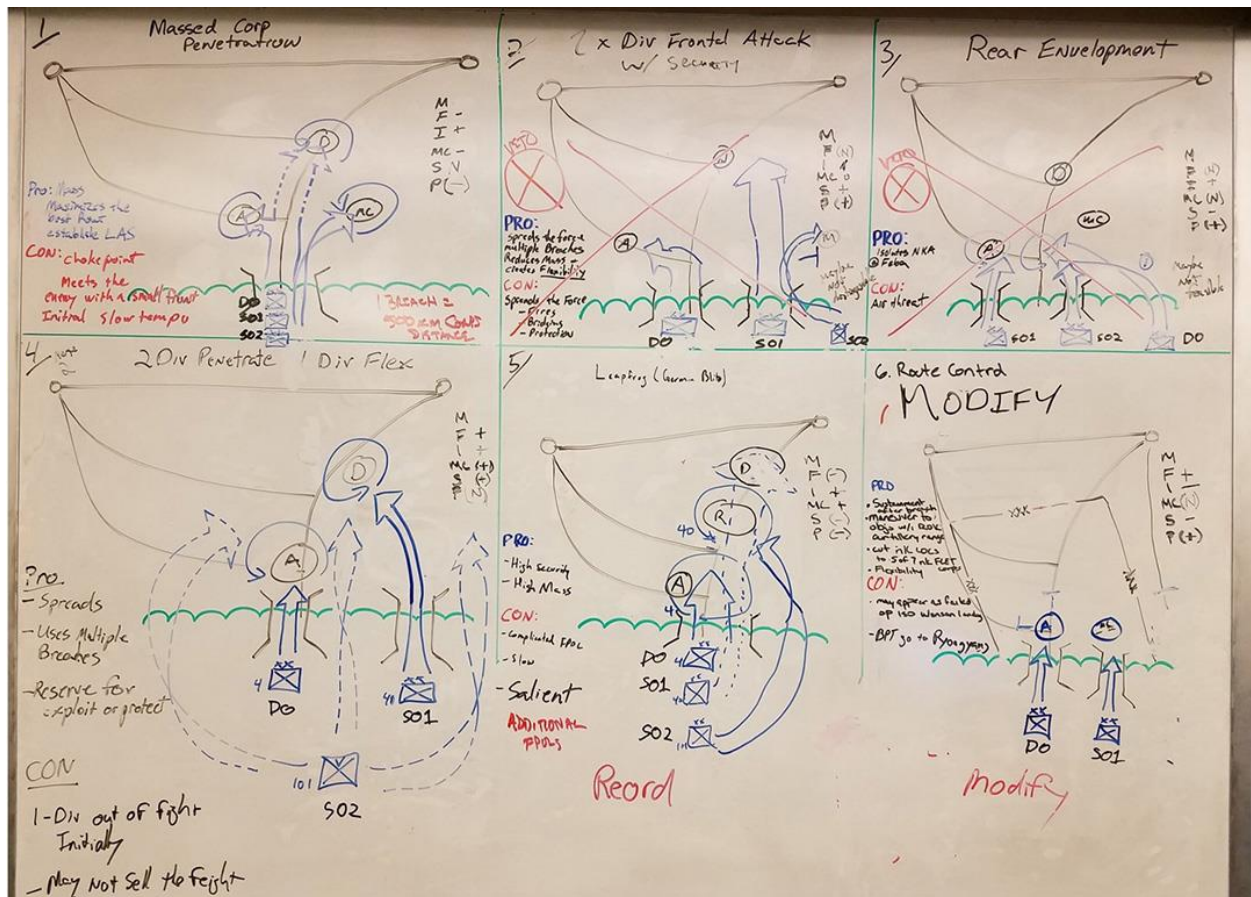 1/
Massed Corp
Penetration
D
A
MC
M
F -
I +
MC -
S
P (-)
Pro: Mass
Maximizes the
best
establish LAS
CON: choke point
Meets the
enemy with a small front
Initial slow tempo
DO
SO1
SO2
1 BREACH =
500 KM
DISTANCE
2/
2 x Div Frontal Attack
w/ Security
VETO
M
F (N)
I
MC
S +
P (+)
PRO:
spreads the force
multiple Breaches
Reduces Mass -
creates Flexibility
CON:
Spreads the Force
- Fires
- Bridging
- Protection
A
M
maybe
Not
DO
SO1
SO2
3/
Rear Envelopment
VETO
D
MC
A
M
MC (N)
S -
P (+)
PRO:
Isolates NKA
@ Feba
CON:
Air threat
maybe
Not
feasible
SO1
SO2
DO
4/
2 Div Penetrate 1 Div Flex
M
F +
I +
MC (+)
D
A
Pro.
- Spreads
- Uses Multiple
Breaches
- Reserve for
exploit or protect
XX
4
DO
XX
40
SO1
101
SO2
CON
1-Div out of fight
Initially
- May Not Sell the feight
5/
Leapfrog (German Blitz)
M
F (-)
I +
MC +
S (-)
P (-)
D
R1
40
A
PRO:
- High Security
- High Mass
CON:
- Complicated FPOL
- Slow
- Salient
ADDITIONAL
FPOLS
DO
4
SO1
40
SO2
101
XX
Reord
6. Route Control
MODIFY
M
F +
I
MC
S -
P (+)
XXX
PRO
• Sustainment
after breach
• maneuver to
objs w/i ROK
artillery range
• cut nK LOCs
to 5 of 7 nK FLET
• Flexibility
CON:
• may appear as failed
op ISO Wonson
- BPT go to Pyongyang
A
XX
DO
XX
SO1
Modify